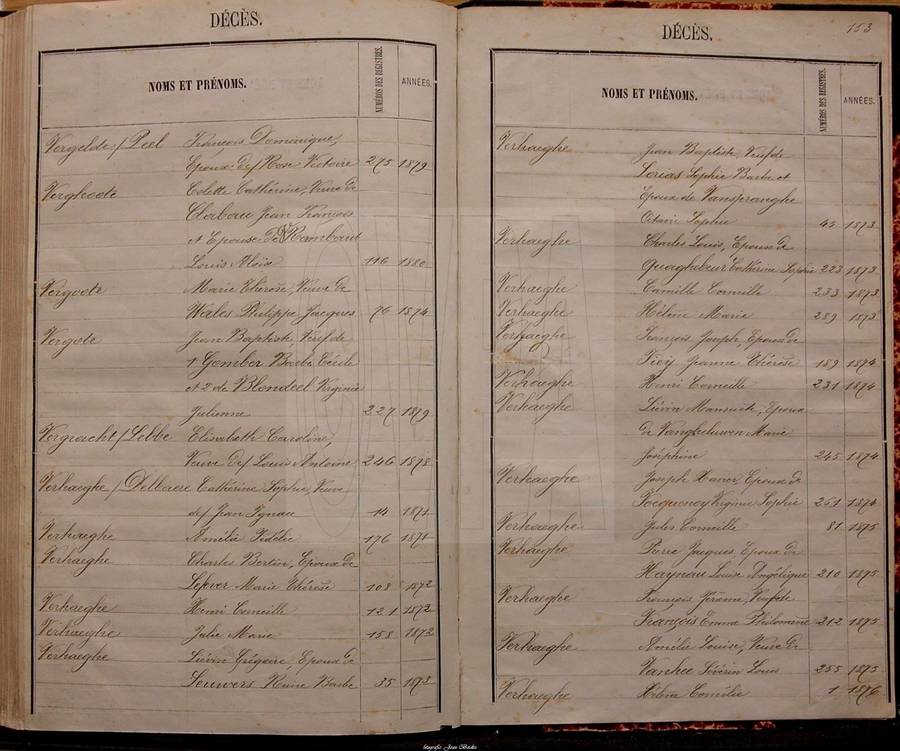 DÉCÈS.
NOMS ET PRÉNOMS. NUMÉROS DES REGISTRES. ANNÉES.
Vergelde / Peel François Dominique,
Epoux de / Rose Victoire 275 1879
Verghoote Colette Cathérine, Veuve de
Clabau Jean François
et Epouse de Rombaut
Louis Aloïse 116 1880
Vergoote Marie Thérèse, Veuve de
Waeles Philippe Jacques 76 1874
Vergote Jean Baptiste Veuf de
1 Gomber Barbe Cécile
et 2 de Blondeel Virginie
Julienne 227 1879
Vergracht / Lebbe Elisabeth Caroline,
Veuve de / Louis Antoine 246 1878
Verhaeghe / Delbaere Cathérine Sophie, Veuve
de / Jean Ignace 14 1871
Verhaeghe Amélie Fidélie 176 1871
Verhaeghe Charles Bertin, Epoux de
Lefever Marie Thérèse 108 1872
Verhaeghe Henri Camille 121 1872
Verhaeghe Julie Marie 158 1872
Verhaeghe Liévin Grégoire, Epoux de
Leuwers Reine Barbe 35 1873
DÉCÈS. 153
NOMS ET PRÉNOMS. NUMÉROS DES REGISTRES. ANNÉES.
Verhaeghe Jean Baptiste, Veuf de
Sophie Barbe et
Epoux de Vanspranghe
Octavie Sophie 45 1873
Verhaeghe Charles Louis, Epoux de
Quaghebeur Cathérine Sophie 223 1873
Verhaeghe Camille Cornille 233 1873
Verhaeghe Hélène Marie 289 1873
Verhaeghe François Joseph, Epoux de
Jeanne Thérèse 189 1874
Verhaeghe Henri Corneille 231 1874
Verhaeghe Liévin Mansuète, Epoux
de Vangheluwen Marie
Joséphine 245 1874
Verhaeghe Joseph Xavier, Epoux de
Virginie Sophie 251 1874
Verhaeghe Jules Corneille 81 1875
Verhaeghe Pierre Jacques, Epoux de
Hayneau Louise Angélique 210 1875
Verhaeghe François Jérôme, Veuf de
François Emma Philomène 212 1875
Verhaeghe Amélie Louise, Veuve de
Vanhee Séverin Louis 255 1875
Verhaeghe Hélène Camélie 1 1876